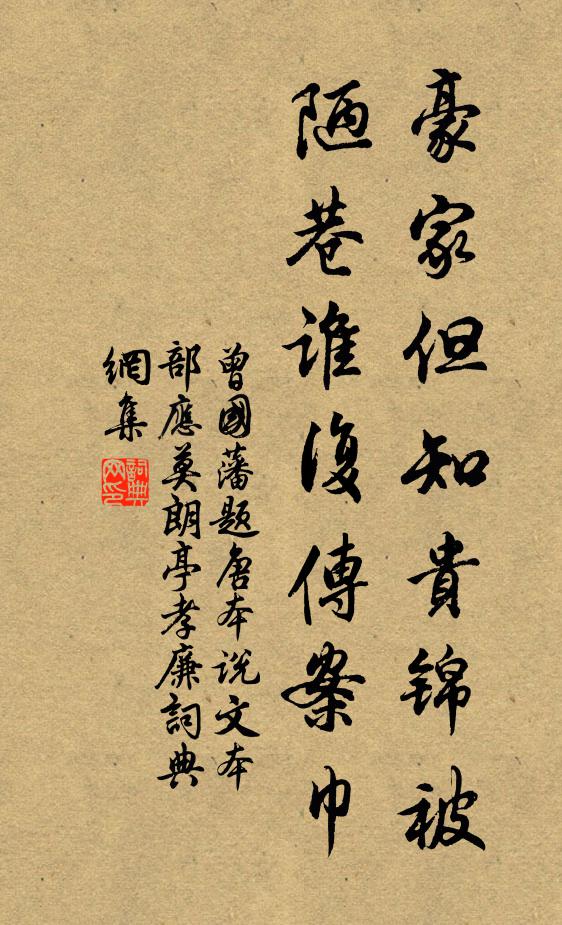 豪家但知貴錦被
陋巷誰復傳案巾
曾國藩題唐本说文本
部應莫朗亭孝廉詞典
網集
詞典
网印